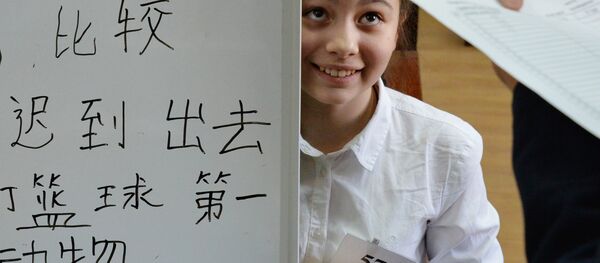 比较
迟到 出去
打篮球 第一
动物